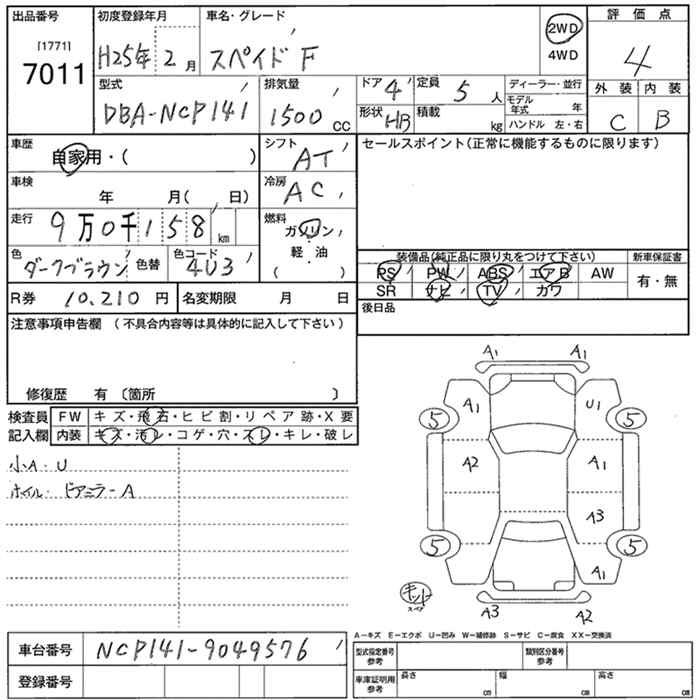 出品番号 初度登録年月 車名・グレード 評価点
[1771]
7011 H25年 2月 スペイド F 2WD 4WD 4
型式 排気量 ドア 4 定員 5 人 ディーラー・並行 外装 内装
DBA-NCP141 1500 CC 形状 HB 積載 kg モデル年式 年 C B
ハンドル 左・右
車歴 自家用・( ) シフト AT セールスポイント(正常に機能するものに限ります)
車検 年 月( 日) 冷房 AC
走行 9万0千158 km 燃料 ガソリン 軽・油 ( )
装備品(純正品に限り丸をつけて下さい) 新車保証書
色 ダークブラウン 色替 色コード 4U3 PS PW ABS エアB AW 有・無
R券 10,210 円 名変期限 月 日 SR ナビ TV カワ
後日品
注意事項申告欄 (不具合内容等は具体的に記入して下さい)
修復歴 有 〔箇所 〕
検査員記入欄 FW キズ・飛石・ヒビ割・リペア跡・X要
内装 キズ・汚レ・コゲ・穴・スレ・キレ・破レ
小A・U
ホイル・ドアミラーA
A1 A1
A1 U1
5 5
A2 A1
A3
5 5
A1
キット
スペア
A3 A2
A-キズ E-エクボ U-凹み W-補修跡 S-サビ C-腐食 XX-交換済
車台番号 NCP141-9049576 型式指定番号 参考 類別区分番号 参考
登録番号 車庫証明用 参考 長さ cm 幅 cm 高さ cm